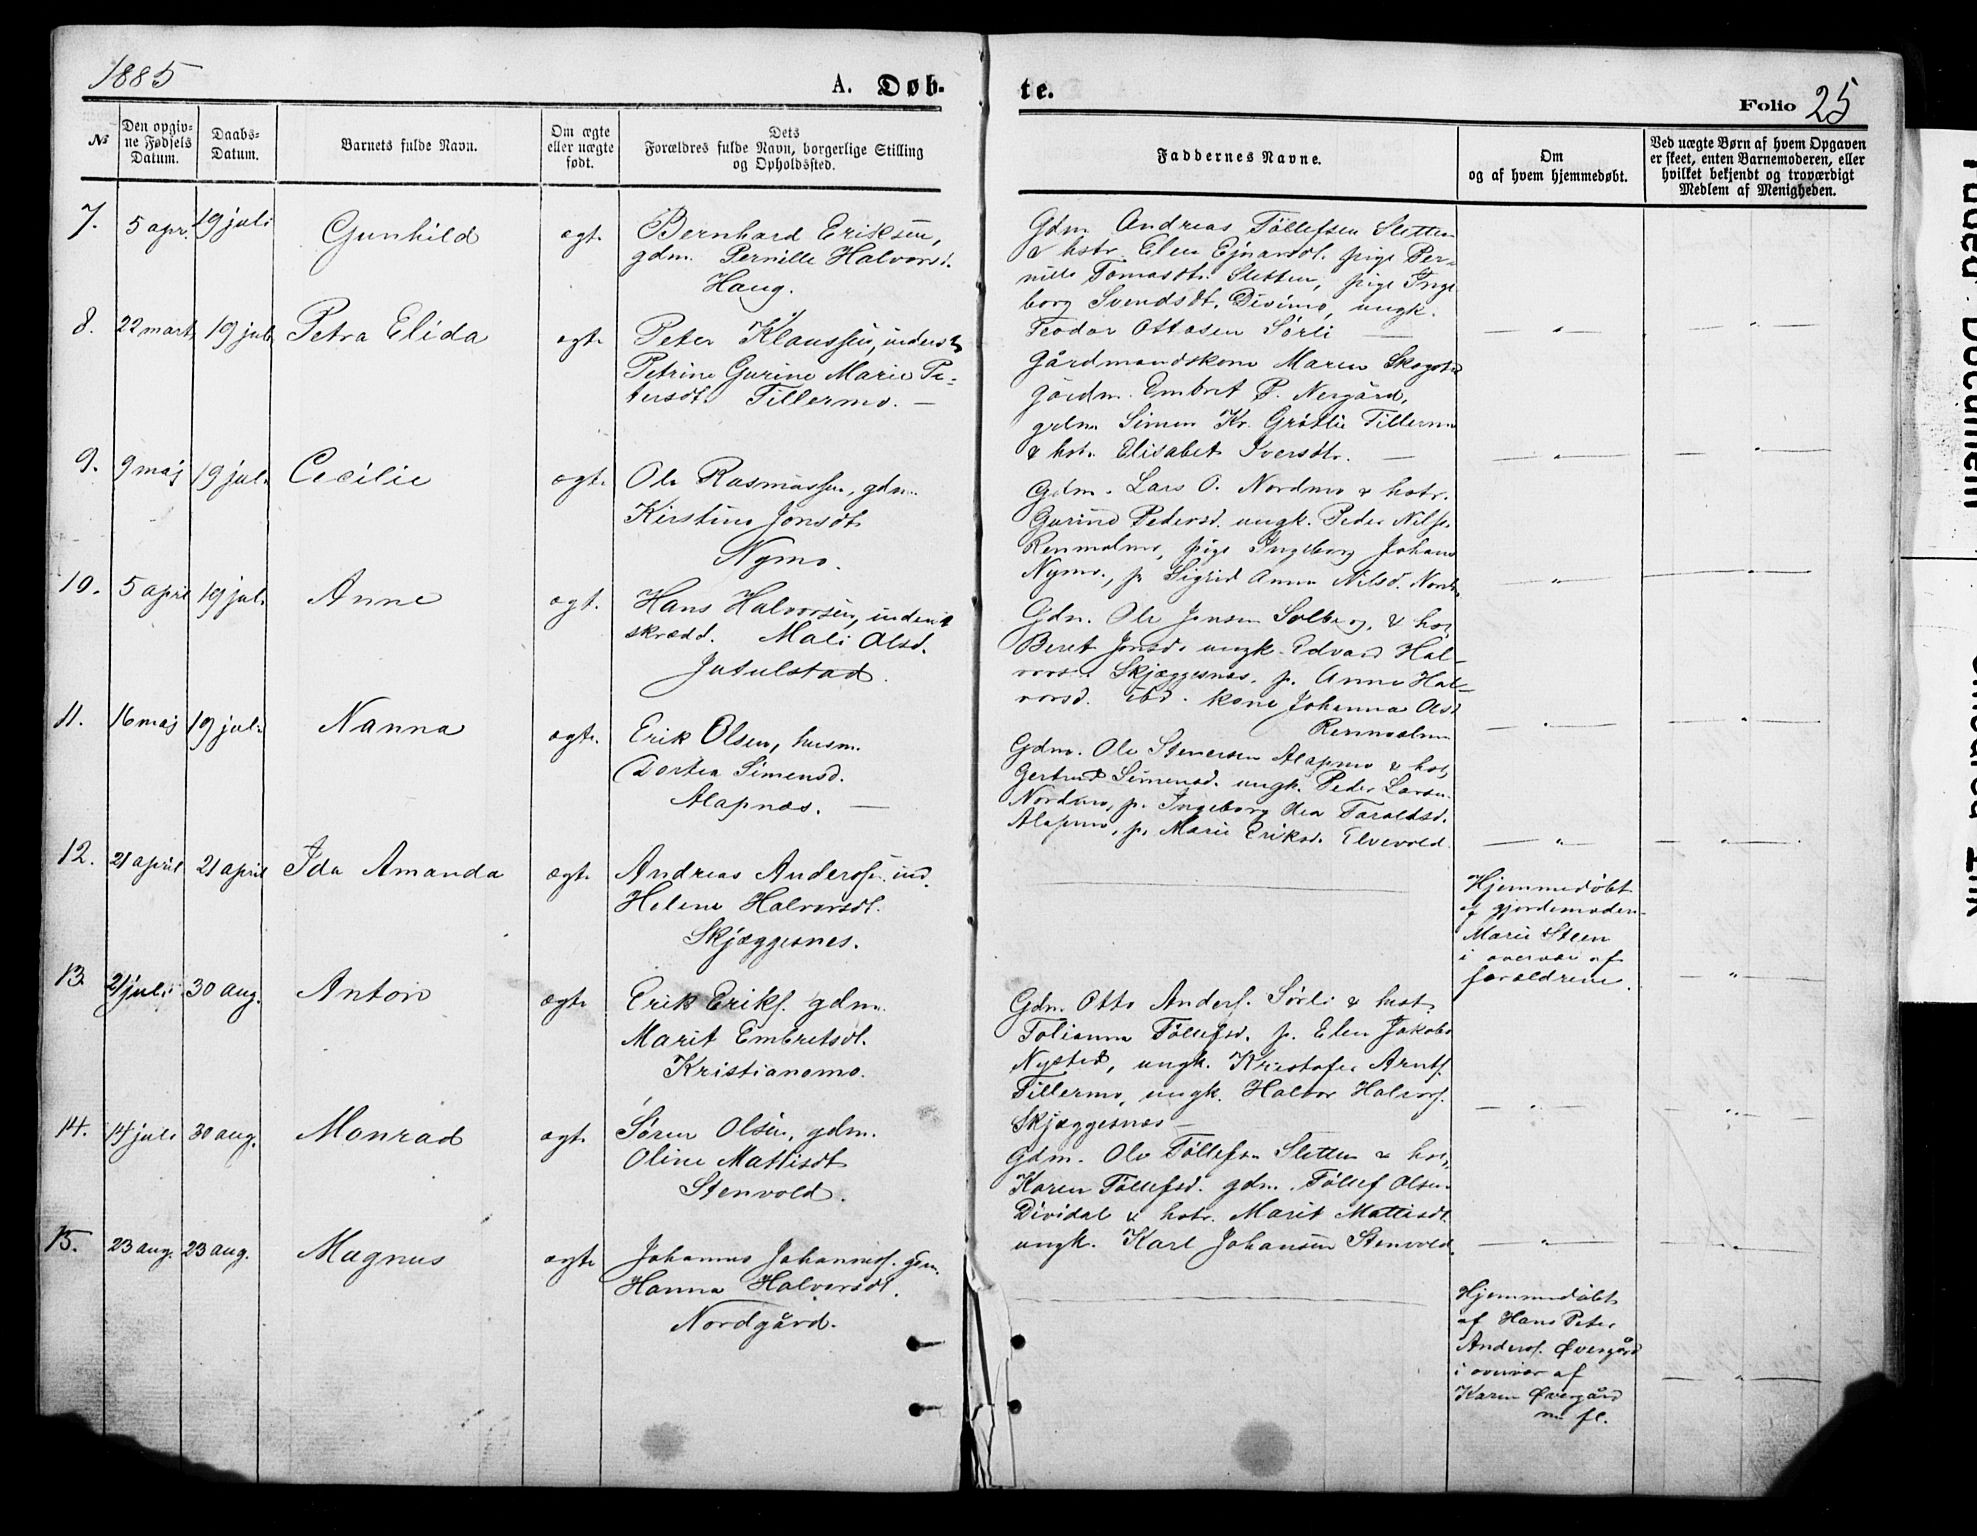 1885
A. Døb-
te.
Folio 25
№
Den opgiv-
ne Fødsels
Datum.
Daabs-
Datum.
Barnets fulde Navn.
Om ægte
eller uægte
født.
Dets
Forældres fulde Navn, borgerlige Stilling
og Opholdsted.
Faddernes Navne.
Om
og af hvem hjemmedøbt.
Ved uægte Børn af hvem Opgaven
er skeet, enten Barnemoderen, eller
hvilket bekjendt og troværdigt
Medlem af Menigheden.
7. 5 apr. 19 juli Gunhild ægt.
Bernhard Eriksen,
gdm. Pernille Halvorsd.
Haug.
Gdm. Andreas Tøllefsen Sletten
& hstr. Elen Ejnarsdt. pige Per-
nille Tomasdt. Sletten, pige Inge
borg Svendsdt. Divimo, ungk.
Teodor Ottosen Sørli —
8. 22 mart 19 juli Petra Elida ægt.
Peter Klaussen, inderst
Petrine Gurine Marie Pe-
tersdt. Tillermo. —
Gårdmandskone Maren
gårdm. Embret P. Nergård,
gdm. Simen Kr. Grøtlie Tillermo
& hstr. Elisabet Iversdtr. —
9. 9 maj 19 juli Cecilie ægt.
Ole Rasmussen, gdm.
Kirstine Jonsdt.
Nymo.
Gdm. Lars O. Nordmo & hstr.
Gurine Pedersd. ungk. Peder Nilss.
Renmalmo, pige Ingeborg Johans
Nymo., p. Sigrid Anna Nilsd.
10. 5 april 19 juli Anne ægt.
Hans Halvorsen, inderst
skrædd. Mali Olsd.
Jutulstad.
Gdm. Ole Jensen Solberg. & hst.
Beret Jonsd. ungk. Edvard Hal-
vors. Skjæggesnes. p. Anne Hal-
vorsd. ibd. kone Johanna Olsd
Renmalmo
11. 16 maj 19 juli Nanna ægt.
Erik Olsen, husm.
Dortea Simensd.
Alapnæs. —
Gdm. Ole Stenersen Alapmo & hst,
Gertrud Simensd. ungk. Peder Larsen
Nordmo, p. Ingeborg Taraldsd.
Alapmo, p. Marie Eriksd. Elvevold.
12. 21 april 21 april Ida Amanda ægt.
Andreas Anders. ind.
Helene Halvorsdt.
Skjæggesnes.
Hjemmedøbt
af gjordemoder
Marie Steen
i overvær af
forældrene.
13. 21 juli 30 aug. Anton ægt.
Erik Eriks. gdm.
Marit Embretsdt.
Kristianomo.
Gdm. Otto Anders. Sørli & hust.
Tolianna Tøllefsd. p. Elen Jakobs
Nysted, ungk. Kristofer Arnts.
Tillermo, ungk. Halvor Halvors.
Skjæggesnes —
14. 14 juli 30 aug. Monrad ægt.
Søren Olsen, gdm.
Oline Mattisdt.
Stenvold.
Gdm. Ole Tøllefsn Sletten & hst,
Karen Tøllefsd. gdm. Tøllef Olsen
Dividal & hstr. Marit Mattisdt.
ungk. Karl Johansen Stenvold.
15. 23 aug. 23 aug. Magnus ægt.
Johannes Johanness. gdm.
Hanna Halvorsdt.
Nordgård.
Hjemmedøbt
af Hans Peter
Anders. Øvergård
i overvær af
Karen Øvergård
m. fl.